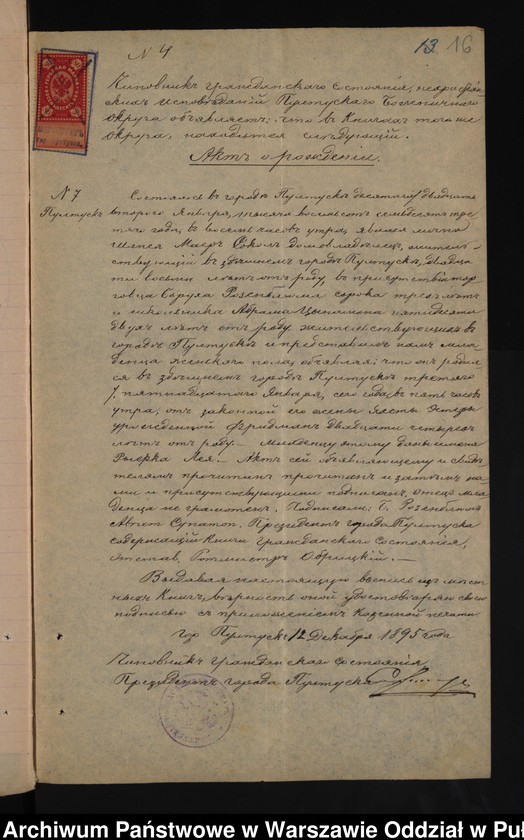 N 4
13 16
Чиновникъ гражданскаго состоянія, нехристіан-
скихъ исповѣданій Пултускаго Божничнаго
округа объявляетъ: что въ книгахъ того же
округа, находится слѣдующій.
Актъ о рожденіи.
N 7
Пултускъ
Состоялось въ городѣ Пултускѣ десятаго / двадцать
втораго Января, тысяча восемьсотъ семьдесятъ тре-
тяго года, въ восемь часовъ утра, явился лично
Маеръ Соколъ домовладѣлецъ, житель-
ствующій въ здѣшнемъ городѣ Пултускѣ, двадца-
ти восьми лѣтъ отъ роду, въ присутствіи тор-
говца Боруха Розенблюма сорока трехъ лѣтъ
и школьника Абрама пятидесяти
двухъ лѣтъ отъ роду жительствующихъ въ
городѣ Пултускѣ и представилъ намъ мла-
денца женскаго пола, объявляя: что онъ родил-
ся въ здѣшнемъ городѣ Пултускѣ третяго
/ пятнадцатаго Января, сего года, въ пять часовъ
утра, отъ законной его жены Эстеры
урожденной Фридманъ двадцати четырехъ
лѣтъ отъ роду. Младенцу этому дано имя
Рывка Лея. Актъ сей объявляющему и свидѣ-
телямъ прочитанъ и затѣмъ на-
ми и присутствующими подписанъ, отецъ мла-
денца не грамотенъ. Подписали: Б. Розенблюмъ
Президентъ города Пултуска
содержащій книги гражданскаго состоянія,
отстав. Ротмистръ Обрицкій.
Выдавая настоящую выпись изъ мѣст-
ныхъ книгъ, вѣрность оной удостовѣряю своею
подписью съ приложеніемъ казенной печати
гор. Пултускъ 12 Декабря 1895 года
Чиновникъ гражданскаго состоянія
Президентъ города Пултуска
Archiwum Państwowe w Warszawie Oddział w Puł